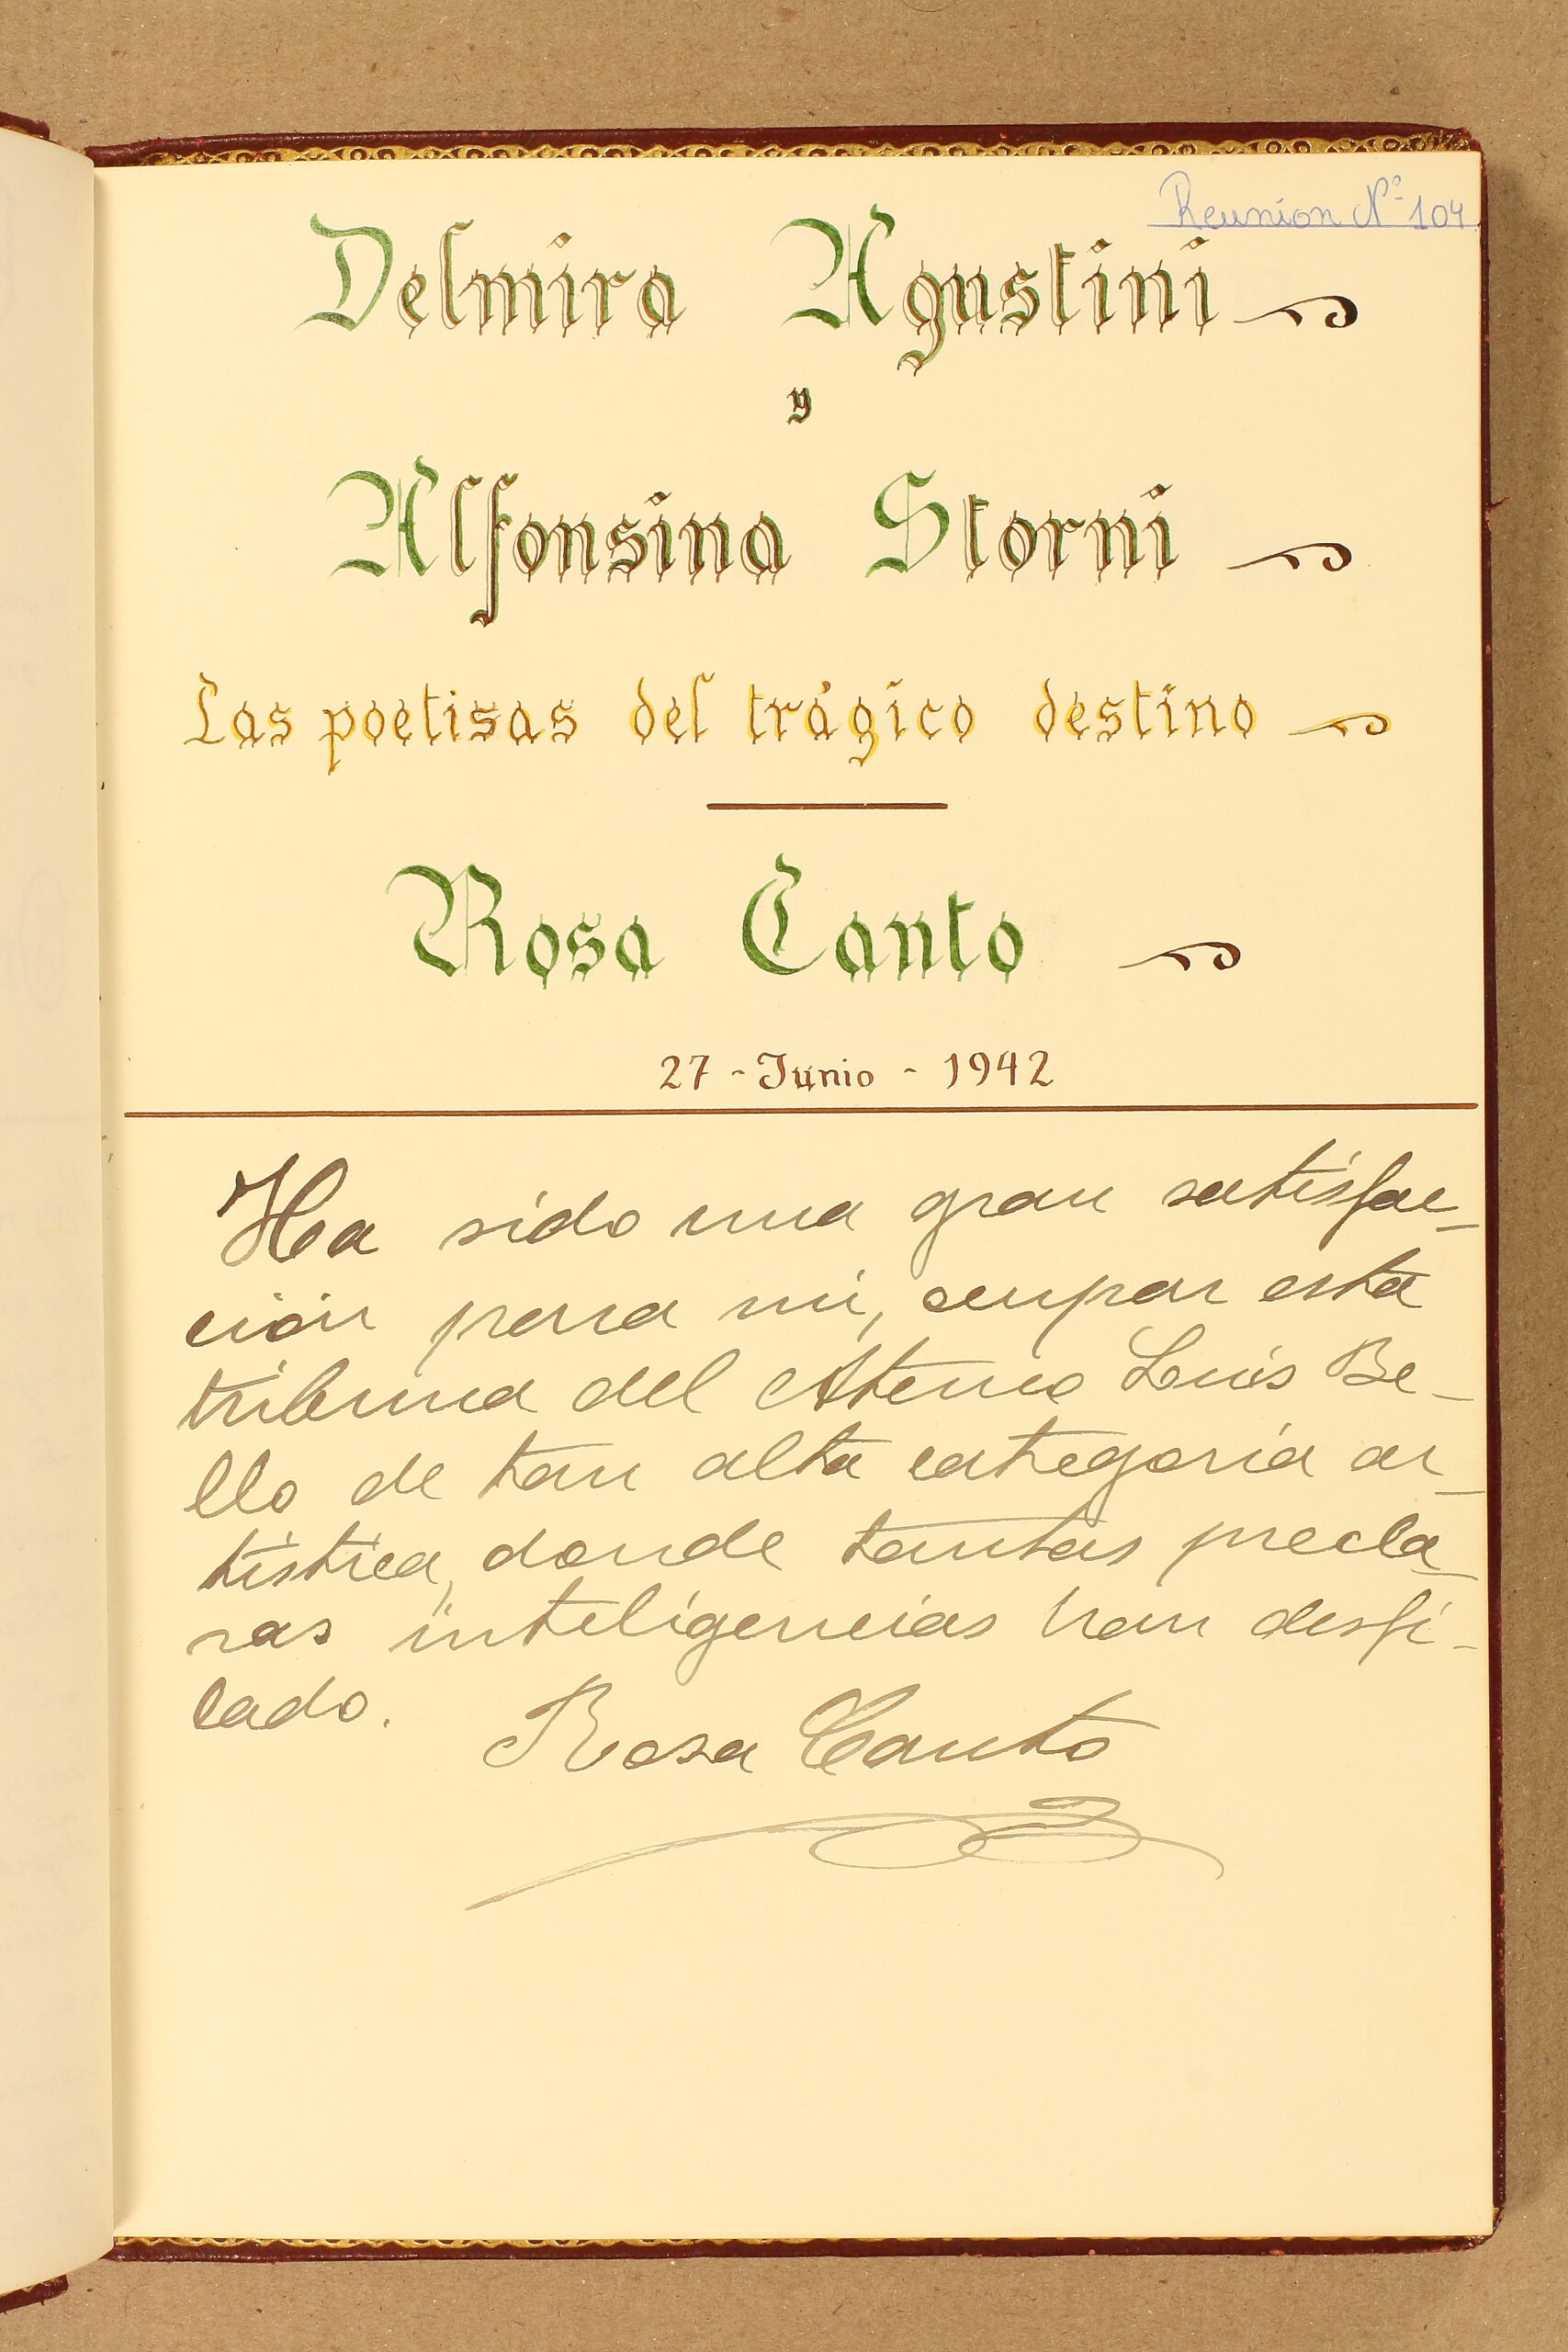 Reunion Nº 104
Delmira Agustini
y
Alfonsina Storni
Las poetisas del trágico destino
Rosa Canto
27 - Junio - 1942
Ha sido una gran satisfac-
ción para mi, ocupar esta
tribuna del Ateneo Luis Be-
llo de tan alta categoría ar-
tística, donde tantas precla-
ras inteligencias han desfi-
lado.
Rosa Canto